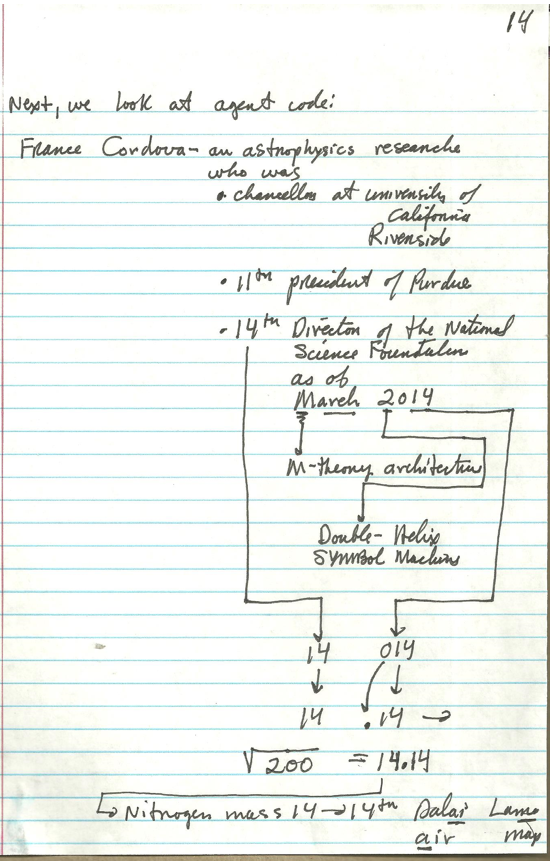 14
Next, we look at agent code:
France Cordova - an astrophysics researche
who was
• chancellor at university of
California
Riverside
• 11th president of Purdue
• 14th Director of the National
Science Foundation
as of
March 2014
M-theory architecture
Double-Helix
SYMBOL Machine
14 014
14 .14 →
√200 = 14.14
↳ Nitrogen mass 14 → 14th Dalai Lama
air map